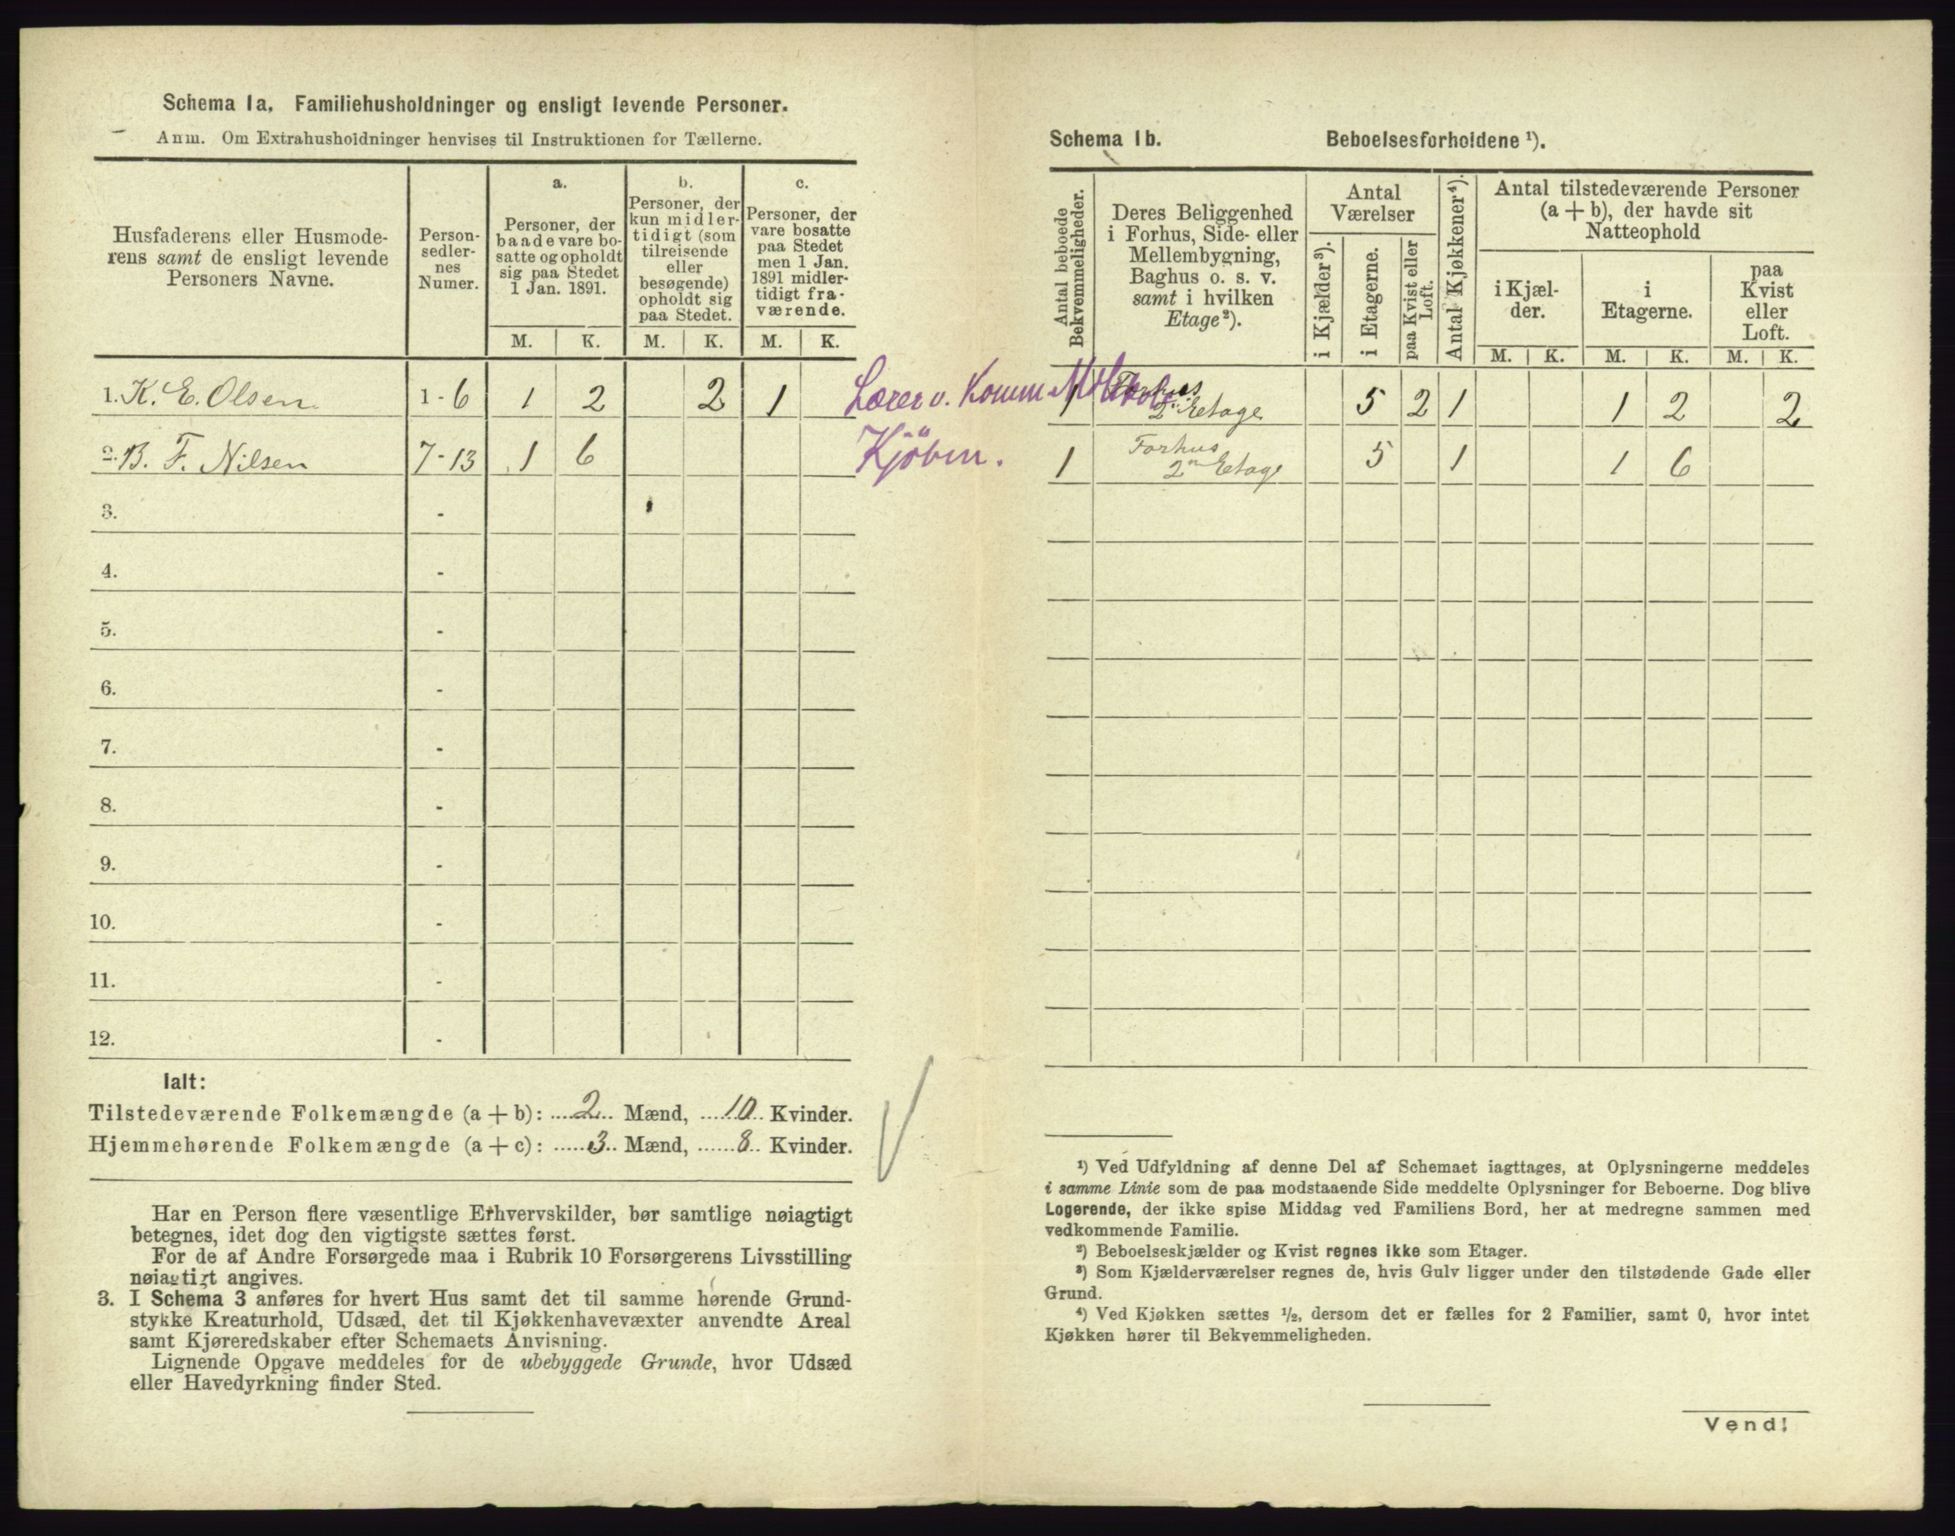 Schema 1a. Familiehusholdninger og ensligt levende Personer.
Anm. Om Extrahusholdninger henvises til Instruktionen for Tællerne.
Husfaderens eller Husmode-
rens samt de ensligt levende
Personers Navne.
Person-
sedler-
nes
Numer.
a.
Personer, der
baade vare bo-
satte og opholdt
sig paa Stedet
1 Jan. 1891.
b.
Personer, der
kun midler-
tidigt (som
tilreisende
eller
besøgende)
opholdt sig
paa Stedet.
c.
Personer, der
vare bosatte
paa Stedet
men 1 Jan.
1891 midler-
tidigt fra-
værende.
M. K. M. K. M. K.
1. K. E. Olsen 1 - 6 1 2 2 1 Lærer v. Komm
2. B. F. Nilsen 7 - 13 1 6 Kjöbm.
3. -
4. -
5. -
6. -
7. -
8. -
9. -
10. -
11. -
12. -
Ialt:
Tilstedeværende Folkemængde (a + b): 2 Mænd, 10 Kvinder.
Hjemmehørende Folkemængde (a + c): 3 Mænd, 8 Kvinder.
Har en Person flere væsentlige Erhvervskilder, bør samtlige nøiagtigt
betegnes, idet dog den vigtigste sættes først.
For de af Andre Forsørgede maa i Rubrik 10 Forsørgerens Livsstilling
nøiagtigt angives.
3. I Schema 3 anføres for hvert Hus samt det til samme hørende Grund-
stykke Kreaturhold, Udsæd, det til Kjøkkenhavevæxter anvendte Areal
samt Kjøreredskaber efter Schemaets Anvisning.
Lignende Opgave meddeles for de ubebyggede Grunde, hvor Udsæd
eller Havedyrkning finder Sted.
Schema 1b. Beboelsesforholdene ¹).
Antal beboede
Bekvemmeligheder.
Deres Beliggenhed
i Forhus, Side- eller
Mellembygning,
Baghus o. s. v.
samt i hvilken
Etage²).
Antal
Værelser
i Kjælder³).
i Etagerne.
paa Kvist eller
Loft.
Antal Kjøkkener⁴).
Antal tilstedeværende Personer
(a + b), der havde sit
Natteophold
i Kjæl-
der.
i
Etagerne.
paa
Kvist
eller
Loft.
M. K. M. K. M. K.
1 Forhus
2 Etage 5 2 1 1 2 2
1 Forhus
2 Etage 5 1 1 6
¹) Ved Udfyldning af denne Del af Schemaet iagttages, at Oplysningerne meddeles
i samme Linie som de paa modstaaende Side meddelte Oplysninger for Beboerne. Dog blive
Logerende, der ikke spise Middag ved Familiens Bord, her at medregne sammen med
vedkommende Familie.
²) Beboelseskjælder og Kvist regnes ikke som Etager.
³) Som Kjælderværelser regnes de, hvis Gulv ligger under den tilstødende Gade eller
Grund.
⁴) Ved Kjøkken sættes ½, dersom det er fælles for 2 Familier, samt 0, hvor intet
Kjøkken hører til Bekvemmeligheden.
Vend!